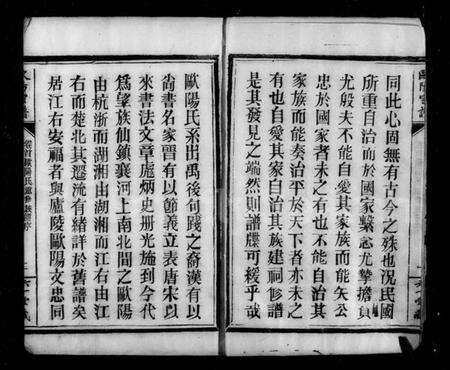 同此心固無有古今之殊也況民國
所重自治而於國家繫念尤摯擔負
尤殷夫不能自愛其家族而能矢公
忠於國家者未之有也不能自治其
家族而能奏治平於天下者亦未之
有也自愛其家自治其族建祠修譜
是其發見之端然則譜牒可緩乎哉
歐陽氏系出禹後句踐之裔漢有以
尚書名家晉有以節義立表唐宋以
來書法文章施炳史册光施到今代
為望族仙鎮襄河上南北間之歐陽
由杭浙而湖湘由湖湘而江右由江
右而楚北其遷流有緒詳於舊譜矣
居江右安福者與廬陵歐陽文忠同